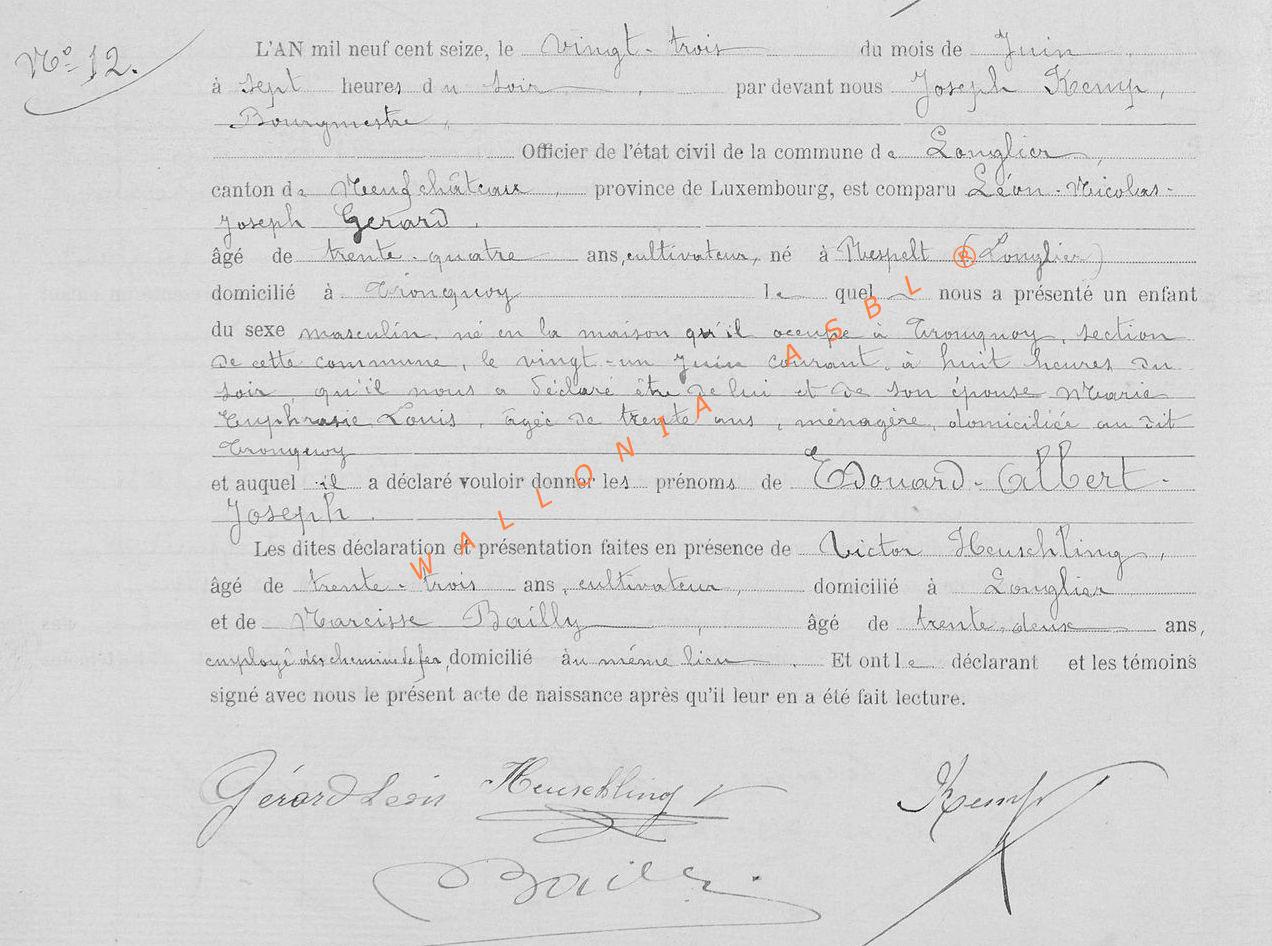 N° 12.
L'AN mil neuf cent seize, le vingt-trois du mois de Juin,
à sept heures du soir, par devant nous Joseph Kemp,
Bourgmestre,
Officier de l'état civil de la commune de Longlier,
canton de Neufchâteau, province de Luxembourg, est comparu Léon-Nicolas-
Joseph Gerard,
âgé de trente-quatre ans, cultivateur, né à Respelt (Longlier)
domicilié à Tronquoy lequel nous a présenté un enfant
du sexe masculin, né en la maison qu'il occupe à Tronquoy, section
de cette commune, le vingt-un Juin courant, à huit heures du
soir, qu'il nous a déclaré être de lui et de son épouse Marie
Euphrasie Louis, âgée de trente ans, ménagère, domiciliée au dit
Tronquoy
et auquel il a déclaré vouloir donner les prénoms de Edouard-Albert-
Joseph.
Les dites déclaration et présentation faites en présence de Victor Heuschling,
âgé de trente-trois ans, cultivateur, domicilié à Longlier
et de Narcisse Bailly, âgé de trente-deux ans,
employé des chemins de fer, domicilié au même lieu. Et ont le déclarant et les témoins
signé avec nous le présent acte de naissance après qu'il leur en a été fait lecture.
Gérard Léon Heuschling V Kemp
Bailly
® WALLONIA ASBL